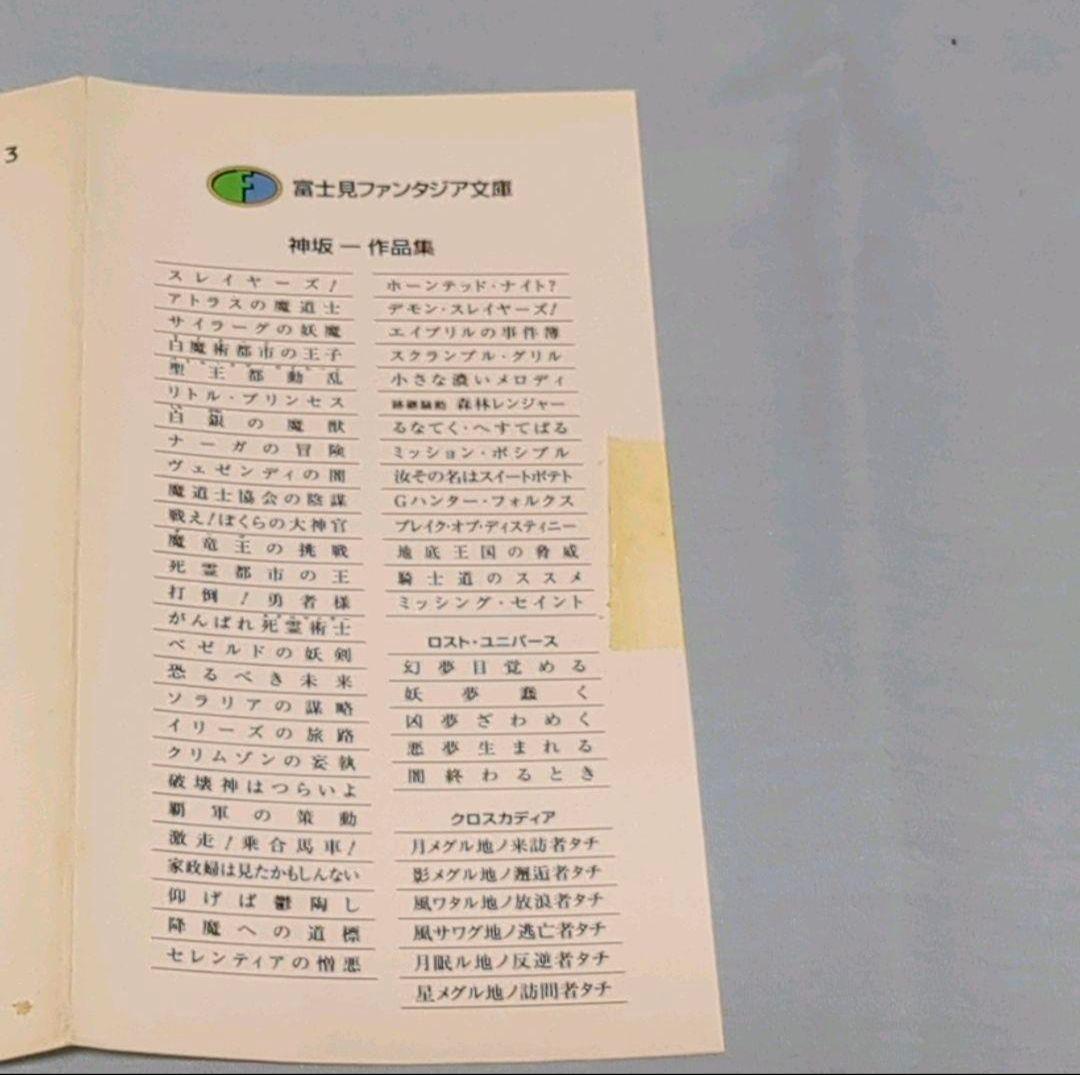 3
富士見ファンタジア文庫
神坂 一 作品集
スレイヤーズ!
アトラスの魔道士
サイラーグの妖魔
白魔術都市の王子
聖王都動乱
リトル・プリンセス
白銀の魔獣
ナーガの冒険
ヴェゼンディの闇
魔道士協会の陰謀
戦え!ぼくらの大神官
魔竜王の挑戦
死霊都市の王
打倒!勇者様
がんばれ死霊術士
ベゼルドの妖剣
恐るべき未来
ソラリアの謀略
イリーズの旅路
クリムゾンの妄執
破壊神はつらいよ
覇軍の策動
激走!乗合馬車!
家政婦は見たかもしんない
仰げば鬱陶し
降魔への道標
セレンティアの憎悪
ホーンテッド・ナイト?
デモン・スレイヤーズ!
エイプリルの事件簿
スクランブル・グリル
小さな濃いメロディ
跡継騒動 森林レンジャー
るなてく・へすてばる
ミッション・ポシブル
汝その名はスイートポテト
Gハンター・フォルクス
ブレイク・オブ・ディスティニー
地底王国の脅威
騎士道のススメ
ミッシング・セイント
ロスト・ユニバース
幻夢目覚める
妖夢蠢く
凶夢ざわめく
悪夢生まれる
闇終わるとき
クロスカディア
月メグル地ノ来訪者タチ
影メグル地ノ邂逅者タチ
風ワタル地ノ放浪者タチ
風サワグ地ノ逃亡者タチ
月眠ル地ノ反逆者タチ
星メグル地ノ訪問者タチ